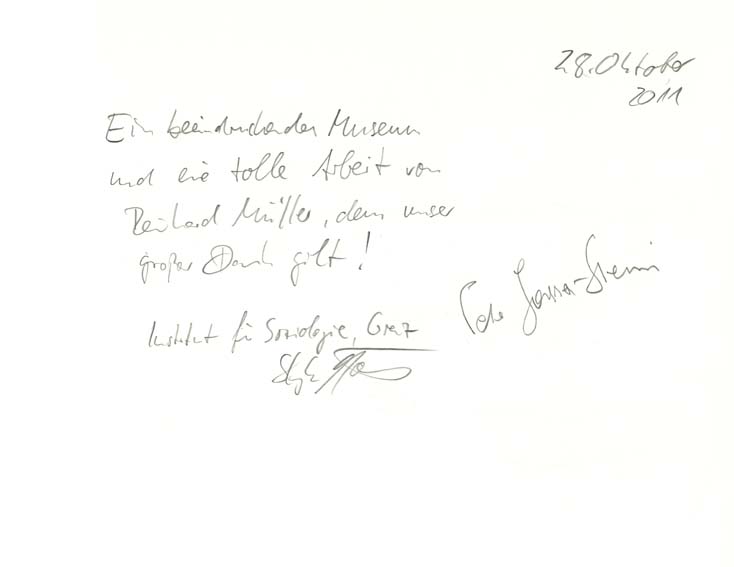 28. Oktober
2011
Ein beeindruckendes Museum
und eine tolle Arbeit von
Reinhard Müller, dem unser
großer Dank gilt!
Institut für Soziologie, Graz